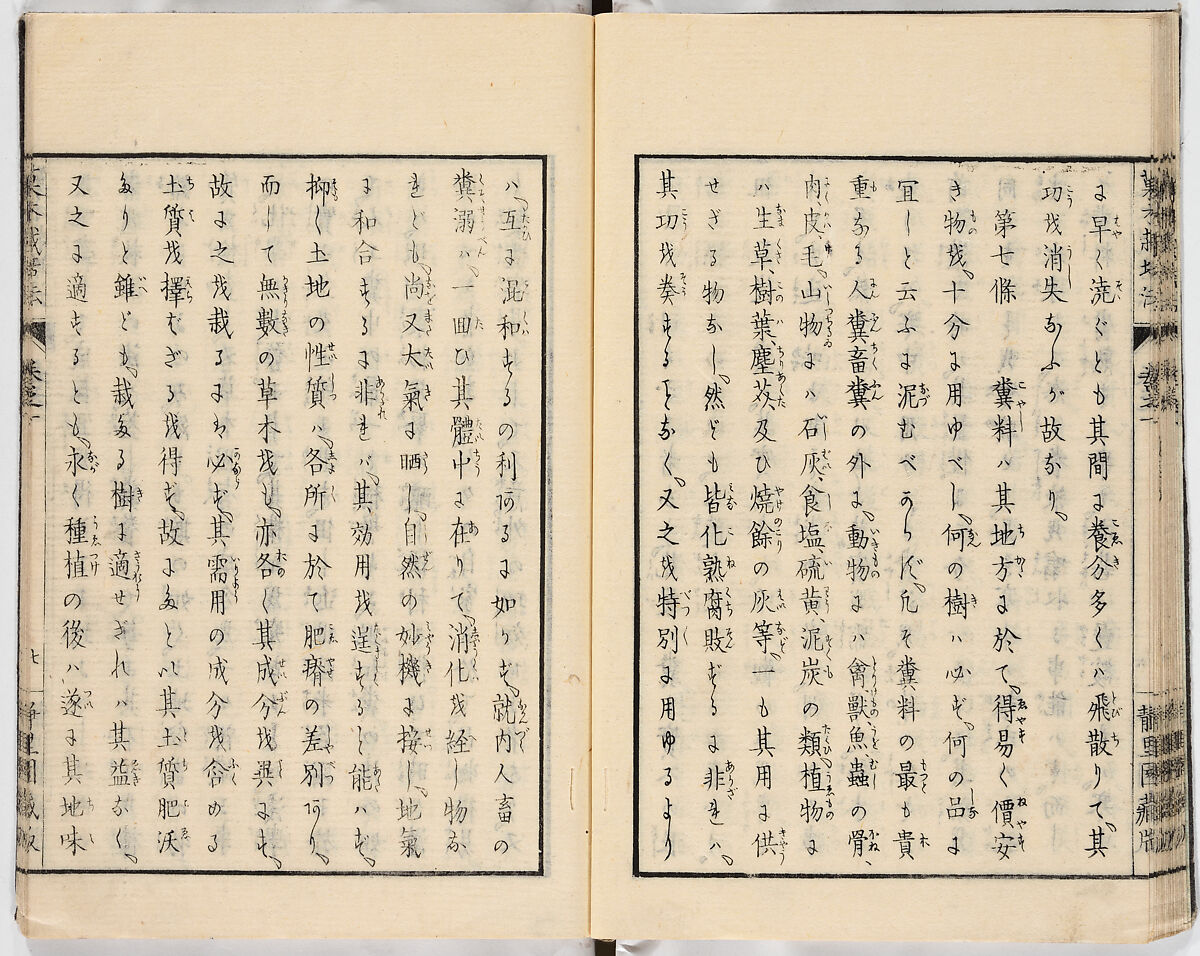 に早く澆ぐとも其間に養分多くハ飛散りて、其
功を消失なふが故なり、
第七條　糞料ハ其地方に於て、得易く價安
き物を、十分に用ゆべし、何の樹ハ必ず、何の品に
宜しと云ふに泥むべからず、凡そ糞料の最も貴
重なる人糞畜糞の外に、動物にハ禽獸魚蟲の骨、
肉、皮毛、山物にハ石灰、食塩、硫黄、泥炭の類、植物に
ハ生草、樹葉、塵芥、及ひ燒餘の灰等、一も其用に供
せざる物なし、然ども皆化熟腐敗ずるに非れハ、
其功を奏することなく、又之を特別に用ゆるより
ハ、互に混和するの利あるに如かず、就内人畜の
糞溺ハ、一囬ひ其體中に在りて、消化を経し物な
れども、尚又大氣に晒し、自然の妙機に接し、地氣
に和合するに非れバ、其効用を逞すること能ハず、
抑〻土地の性質ハ、各所に於て肥瘠の差別あり、
而して無數の草木をも、亦各〻其成分を異にす、
故に之を栽るにハ必ず、其需用の成分を含める
土質を擇ばざるを得ず、故にたとい其土質肥沃
たりと雖ども、栽たる樹に適せざれハ其益なく、
又之に適するとも、永く種植の後ハ遂に其地味
菓木栽培法
卷之一
七
静里園蔵版